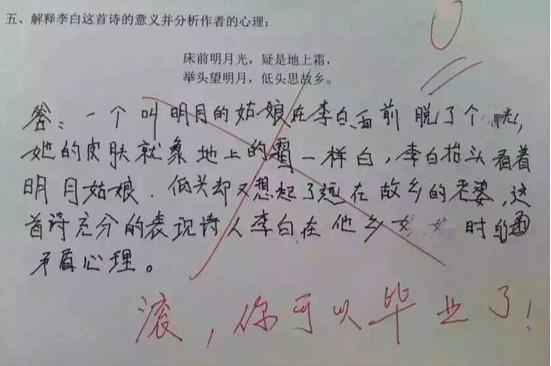 五、解释李白这首诗的意义并分析作者的心理：
床前明月光，疑是地上霜，
举头望明月，低头思故乡。
答：一个叫明月的姑娘在李白面前脱了个光，
她的皮肤就象地上的霜一样白，李白抬头看着
明月姑娘．低头却又想起了远在故乡的老婆，这
首诗充分的表现诗人李白在他乡 时的
矛盾心理。
滚，你可以毕业了！